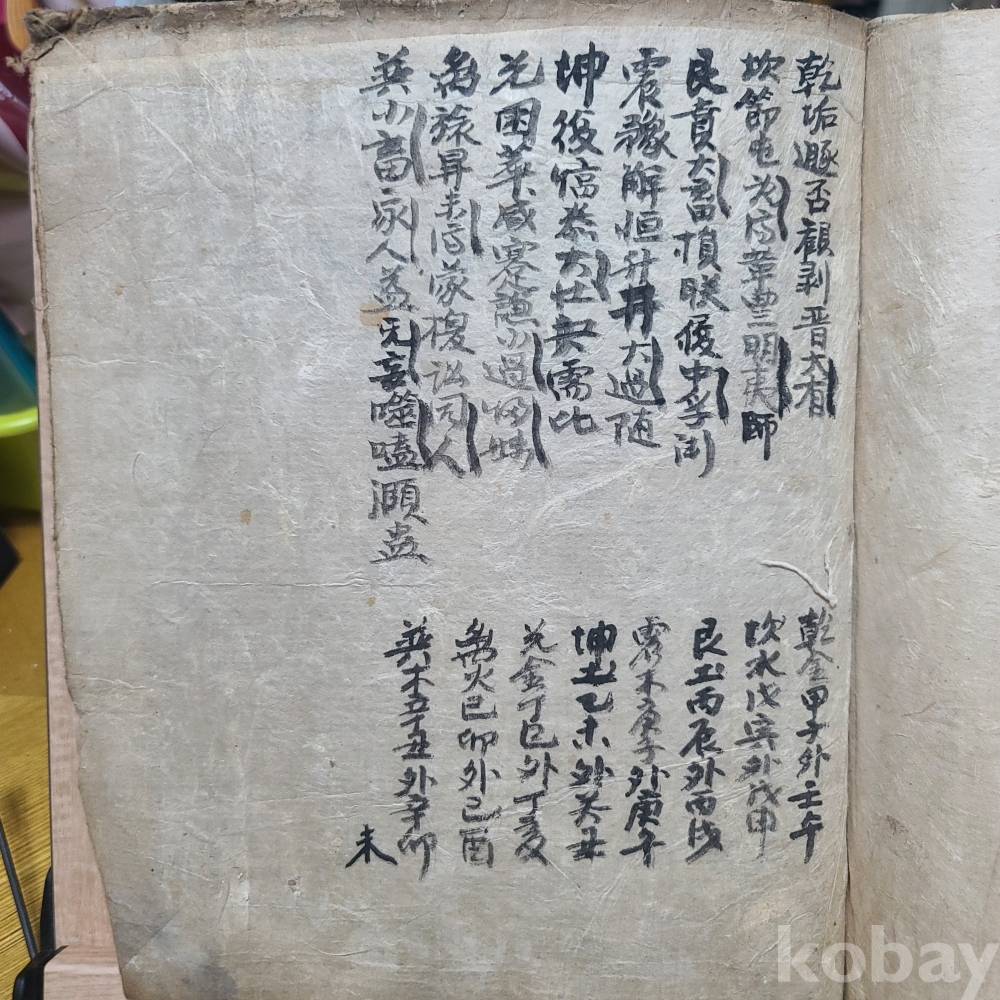 乾垢遯否観剥晋大有
坎節屯旡济革豊明夷師
艮賁大畜損睽履中孚漸
震豫解恒升井大過随
坤復臨泰大壮夬需比
兌困萃咸蹇謙小過帰妹
旅昇未济蒙渙訟同人
巽小畜家人益无妄噬嗑頤蛊
乾金甲子外壬午
坎水戊寅外戊申
艮土丙辰外丙戌
震木庚子外庚午
坤土乙未外癸丑
兌金丁巳外丁亥
火己卯外己酉
巽木辛丑外辛卯
未
kobay